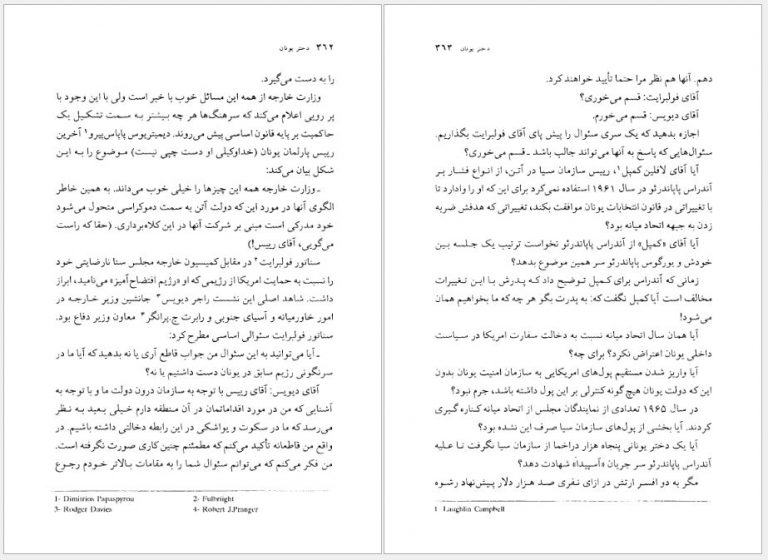 ۳۶۲ دختر یونان
را به دست می‌گیرد.
وزارت خارجه از همه این مسائل خوب با خبر است ولی با این وجود با
پر رویی اعلام می‌کند که سرهنگ‌ها هر چه بیشتر به سمت تشکیل یک
حاکمیت بر پایه قانون اساسی پیش می‌روند. دیمیتریوس پاپاس‌پیرو۱ آخرین
رییس پارلمان یونان (خداوکیلی او دست چپی نیست) موضوع را به این
شکل بیان می‌کند:
ـ وزارت خارجه همه این چیزها را خیلی خوب می‌داند. به همین خاطر
الگوی آنها در مورد این که دولت آتن به سمت دموکراسی متحول می‌شود
خود مدرکی است مبنی بر شرکت آنها در این کلاه‌برداری. (حقا که راست
می‌گویی، آقای رییس!)
سناتور فولبرایت۲ در مقابل کمیسیون خارجه مجلس سنا نارضایتی خود
را نسبت به حمایت امریکا از رژیمی که او «رژیم افتضاح‌آمیز» می‌نامید، ابراز
داشت. شاهد اصلی این نشست راجر دیویس۳ جانشین وزیر خارجه در
امور خاورمیانه و آسیای جنوبی و رابرت ج.پرانگر۴ معاون وزیر دفاع بود.
سناتور فولبرایت سئوالی اساسی مطرح کرد:
ـ آیا می‌توانید به این سئوال من جواب قاطع آری یا نه بدهید که آیا ما در
سرنگونی رژیم سابق در یونان دست داشتیم یا نه؟
آقای دیویس: آقای رییس با توجه به سازمان درون دولت ما و با توجه به
آشنایی که من در مورد اقداماتمان در آن منطقه دارم خیلی بعید به نظر
می‌رسد که ما در سکوت و یواشکی در این رابطه دخالتی داشته باشیم. در
واقع من قاطعانه تأکید می‌کنم که مطمئنم چنین کاری صورت نگرفته است.
من فکر می‌کنم که می‌توانم سئوال شما را به مقامات بالاتر خودم رجوع
1- Dimitrios Papaspyrou 2- Fulbriight
3- Rodger Davies 4- Robert J.Pranger
دختر یونان ۳۶۳
دهم. آنها هم نظر مرا حتما تأیید خواهند کرد.
آقای فولبرایت: قسم می‌خوری؟
آقای دیویس: قسم می‌خورم.
اجازه بدهید که یک سری سئوال را پیش پای آقای فولبرایت بگذاریم.
سئوال‌هایی که پاسخ به آنها می‌تواند جالب باشد ـ قسم می‌خوری؟
آیا آقای لافلین کمپل۱، رییس سازمان سیا در آتن، از انواع فشار بر
آندراس پاپاندرئو در سال ۱۹۶۱ استفاده نمی‌کرد برای این که او را وادارد تا
با تغییراتی در قانون انتخابات یونان موافقت بکند، تغییراتی که هدفش ضربه
زدن به جبهه اتحاد میانه بود؟
آیا آقای «کمپل» از آندراس پاپاندرئو نخواست ترتیب یک جلسه بین
خودش و یورگوس پاپاندرئو سر همین موضوع بدهد؟
زمانی که آندراس برای کمپل توضیح داد که پدرش با این تغییرات
مخالف است آیا کمپل نگفت که: به پدرت بگو هر چه که ما بخواهیم همان
می‌شود!
آیا همان سال اتحاد میانه نسبت به دخالت سفارت امریکا در سیاست
داخلی یونان اعتراض نکرد؟ برای چه؟
آیا واریز شدن مستقیم پول‌های امریکایی به سازمان امنیت یونان بدون
این که دولت یونان هیچ گونه کنترلی بر این پول داشته باشد، جرم نبود؟
در سال ۱۹۶۵ تعدادی از نمایندگان مجلس از اتحاد میانه کناره گیری
کردند. آیا بخشی از پول‌های سازمان سیا صرف این نشده بود؟
آیا یک دختر یونانی پنجاه هزار دراخما از سازمان سیا نگرفت تا علیه
آندراس پاپاندرئو سر جریان «آسپیدا» شهادت دهد؟
مگر به دو افسر ارتش در ازای نفری صد هزار دلار پیش‌نهاد رشوه
1 Laughlin Campbell